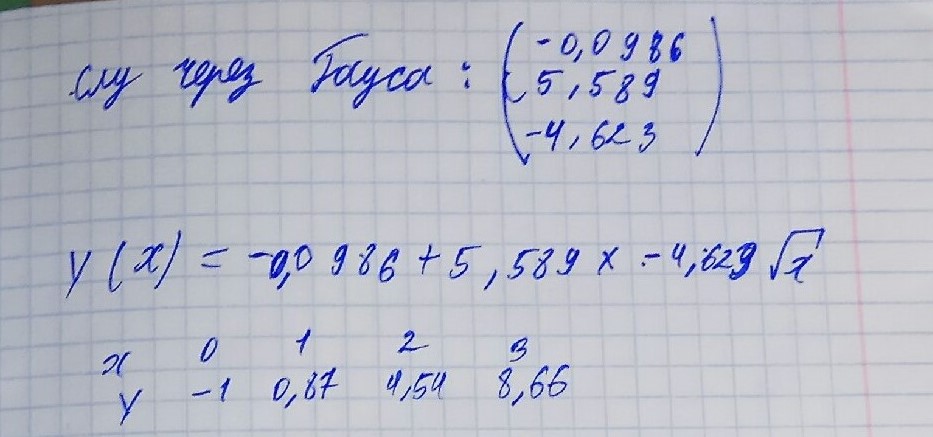 СЛУ через Гауса : ( -0,0986
5,589
-4,623 )
y(x) = -0,0986 + 5,589 x - 4,623 √x
x 0 1 2 3
y -1 0,87 4,54 8,66